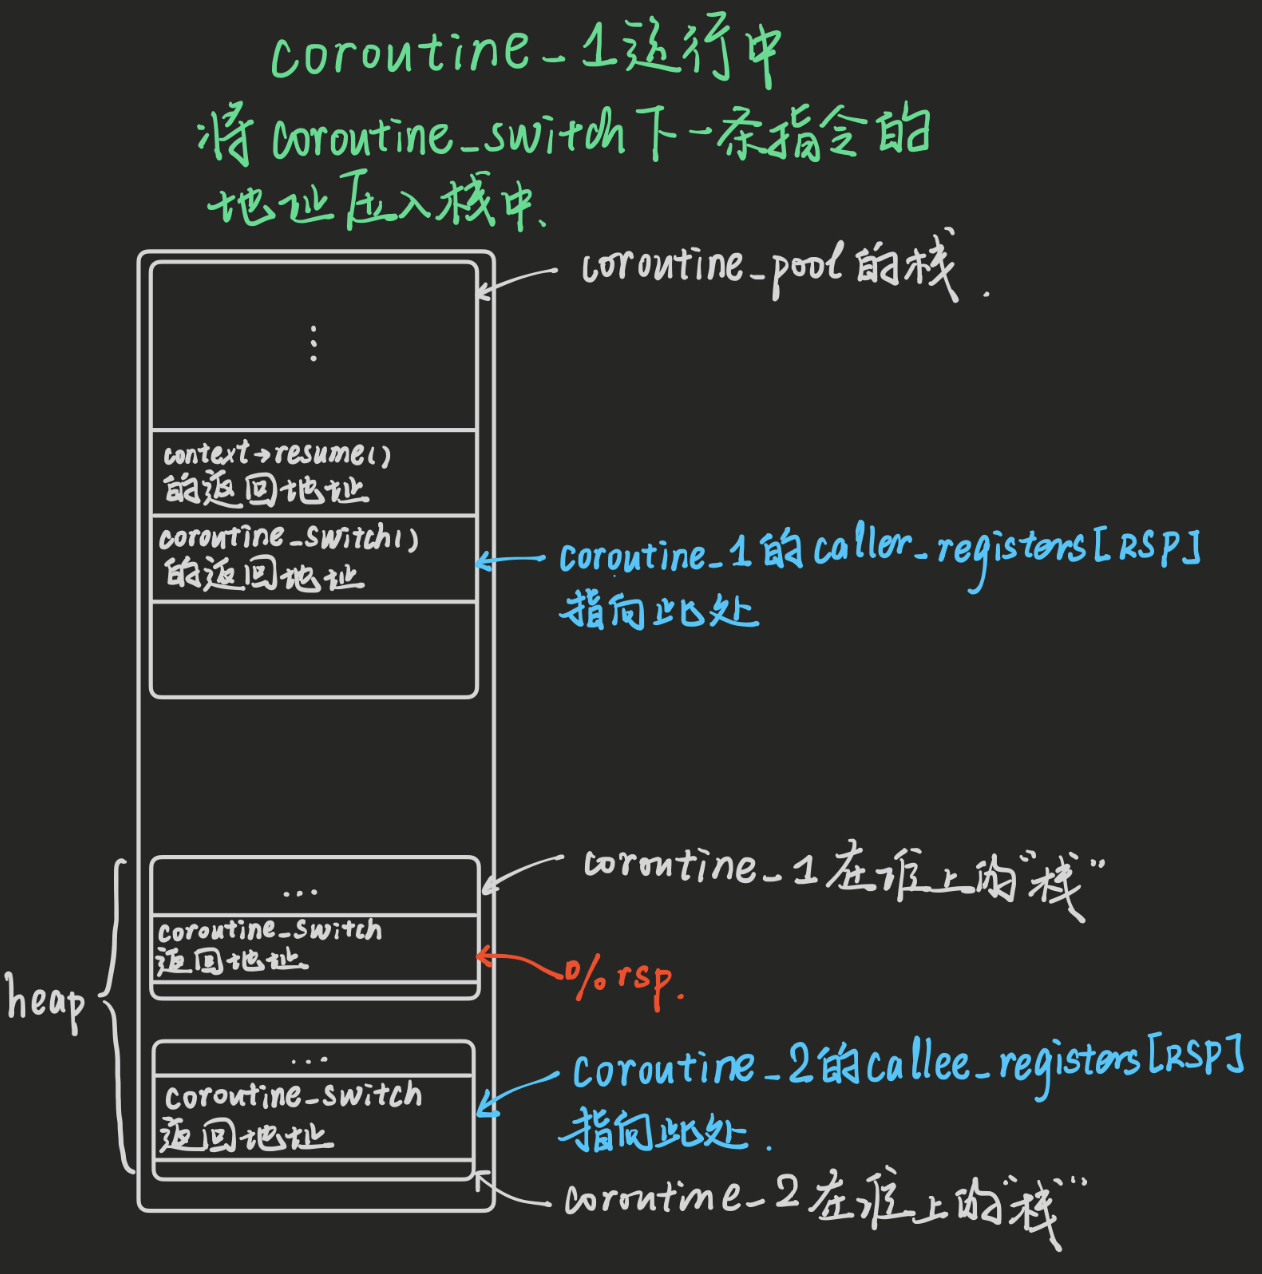 coroutine_1运行中
将coroutine_switch下一条指令的
地址压入栈中、
coroutine_pool的栈.
⋮
context→resume()
的返回地址
coroutine_switch()
的返回地址
coroutine_1的caller_registers[RSP]
指向此处
coroutine_1在堆上的"栈"
...
coroutine_switch
返回地址
%rsp.
heap
...
coroutine_2的callee_registers[RSP]
指向此处.
coroutine_switch
返回地址
coroutine_2在堆上的"栈"